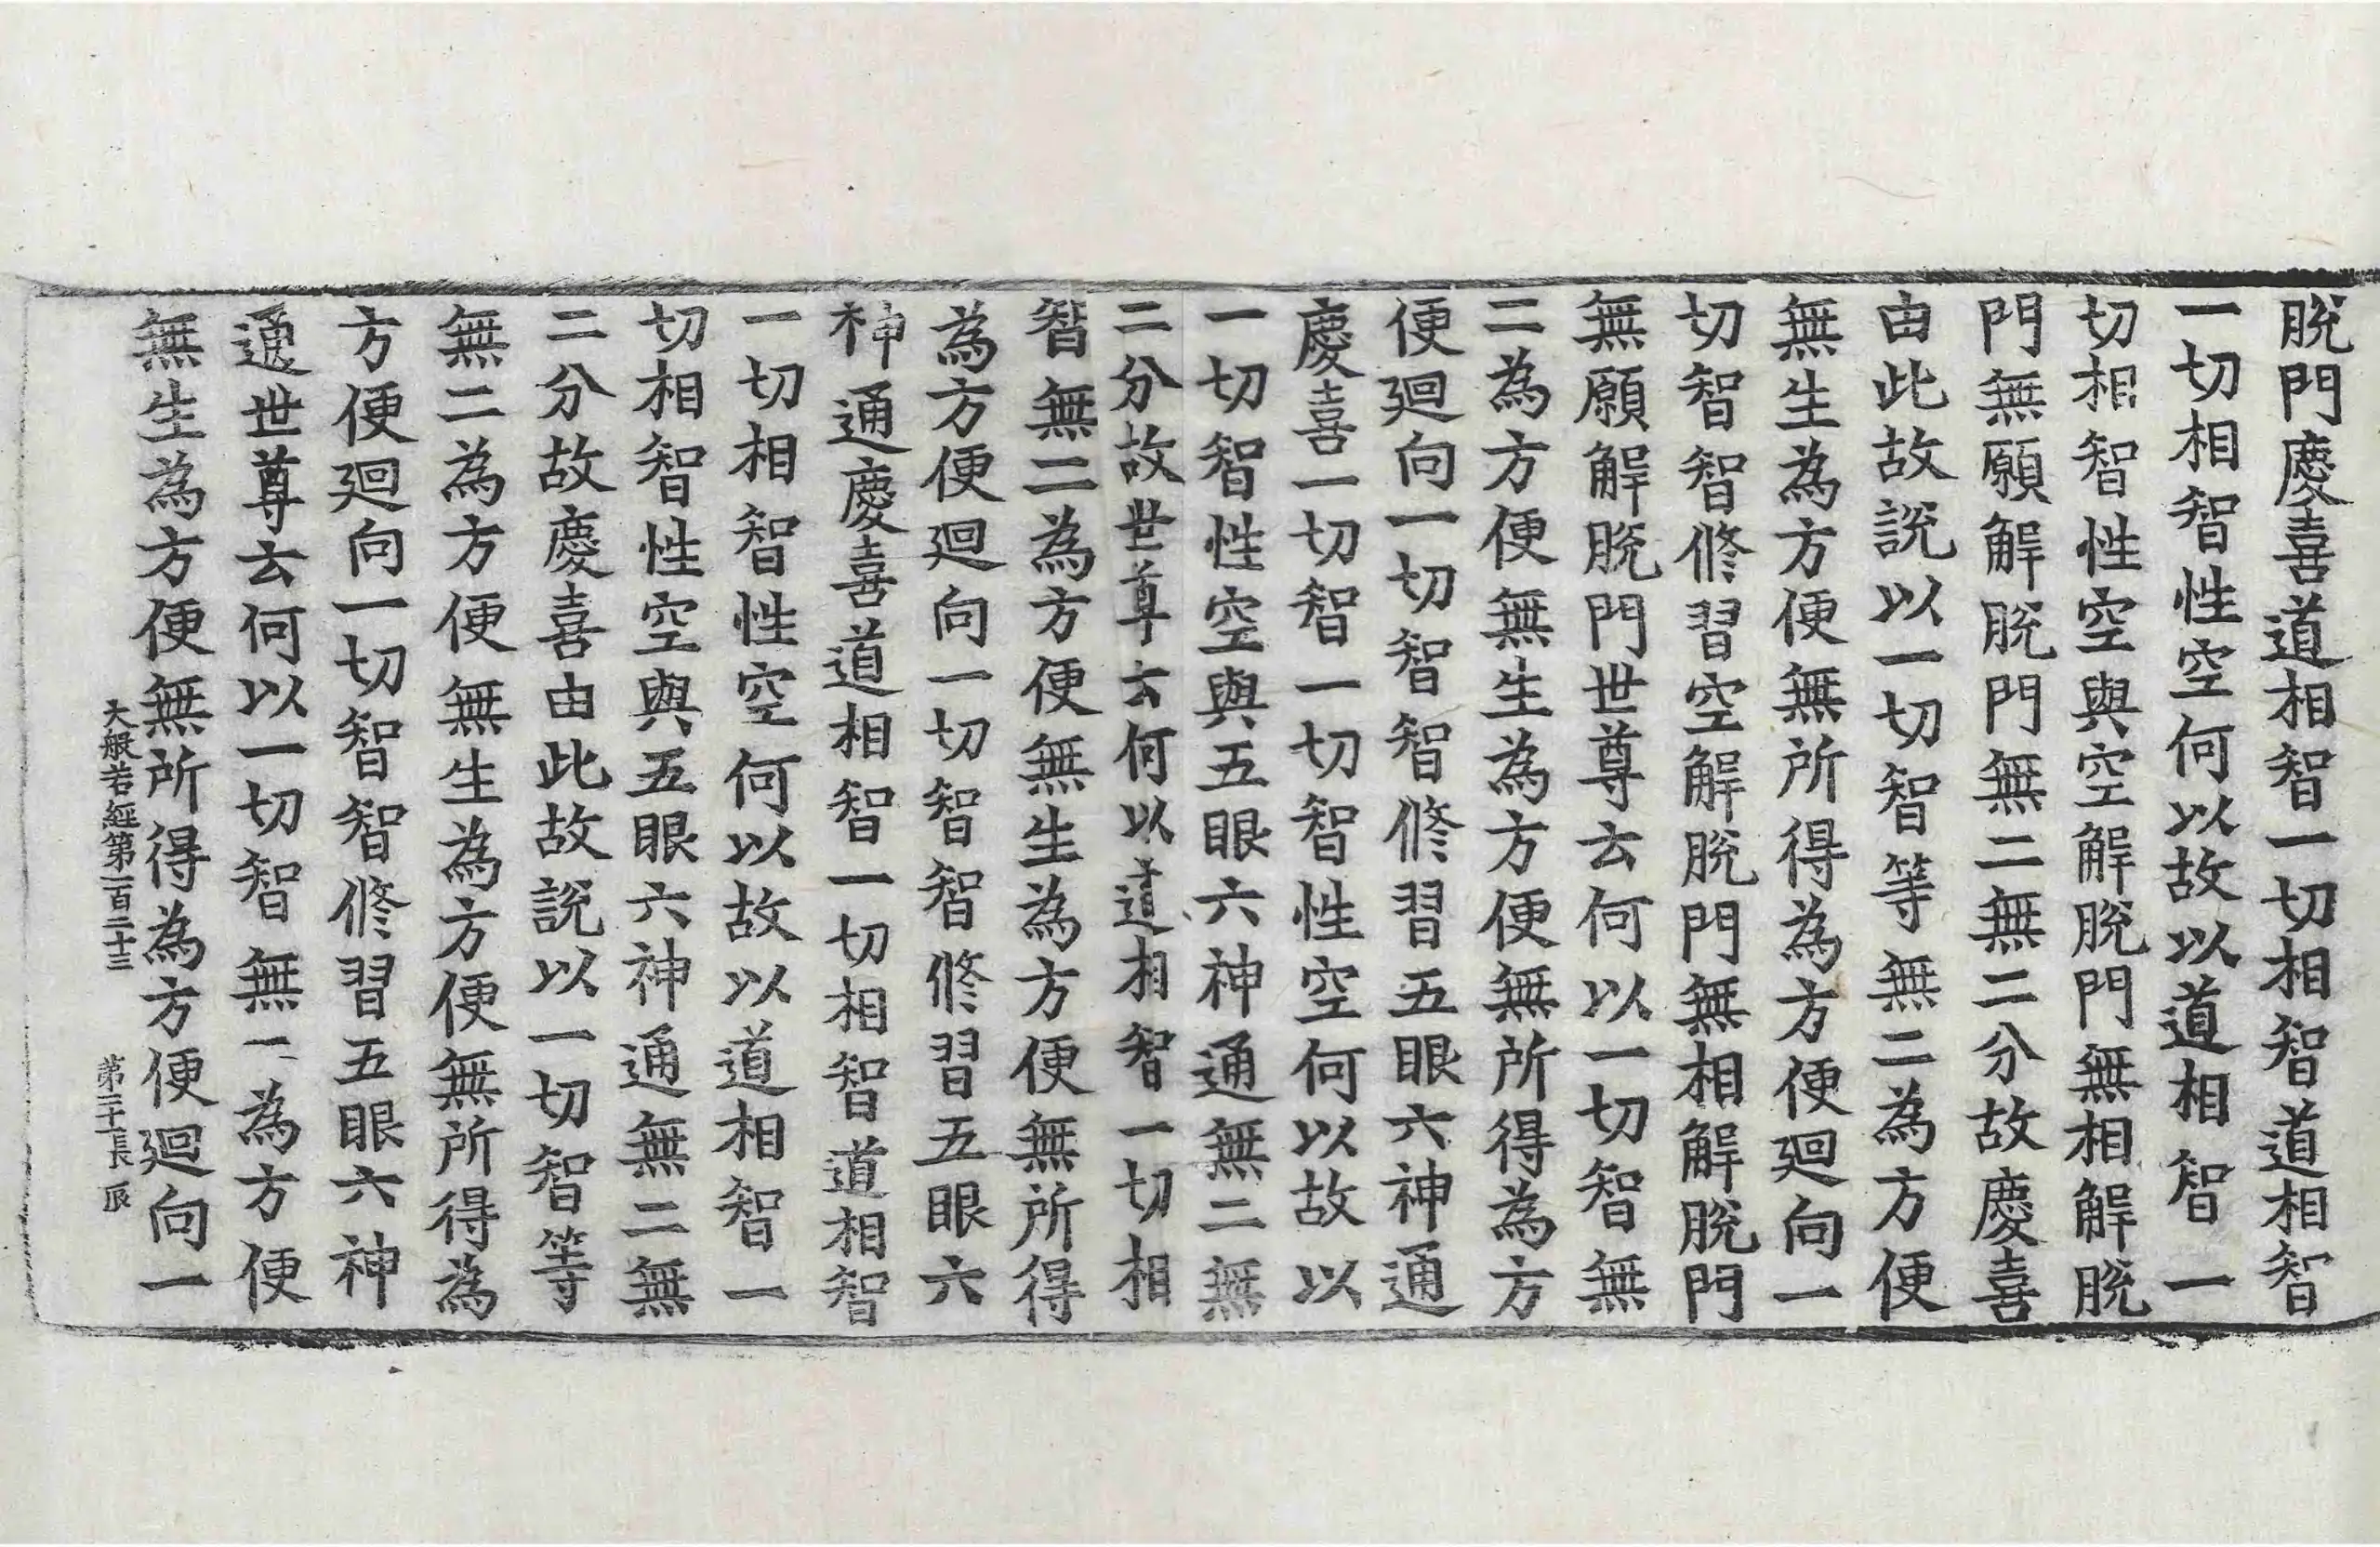 脫門慶喜道相智一切相智道相智
一切相智性空何以故以道相智一
切相智性空與空解脫門無相解脫
門無願解脫門無二無二分故慶喜
由此故說以一切智等無二為方便
無生為方便無所得為方便迴向一
切智智修習空解脫門無相解脫門
無願解脫門世尊云何以一切智無
二為方便無生為方便無所得為方
便迴向一切智智修習五眼六神通
慶喜一切智一切智性空何以故以
一切智性空與五眼六神通無二無
二分故世尊云何以道相智一切相
智無二為方便無生為方便無所得
為方便迴向一切智智修習五眼六
神通慶喜道相智一切相智道相智
一切相智性空何以故以道相智一
切相智性空與五眼六神通無二無
二分故慶喜由此故說以一切智等
無二為方便無生為方便無所得為
方便迴向一切智智修習五眼六神
通世尊云何以一切智無二為方便
無生為方便無所得為方便迴向一
大般若經第一百二十三 第二十一長 辰